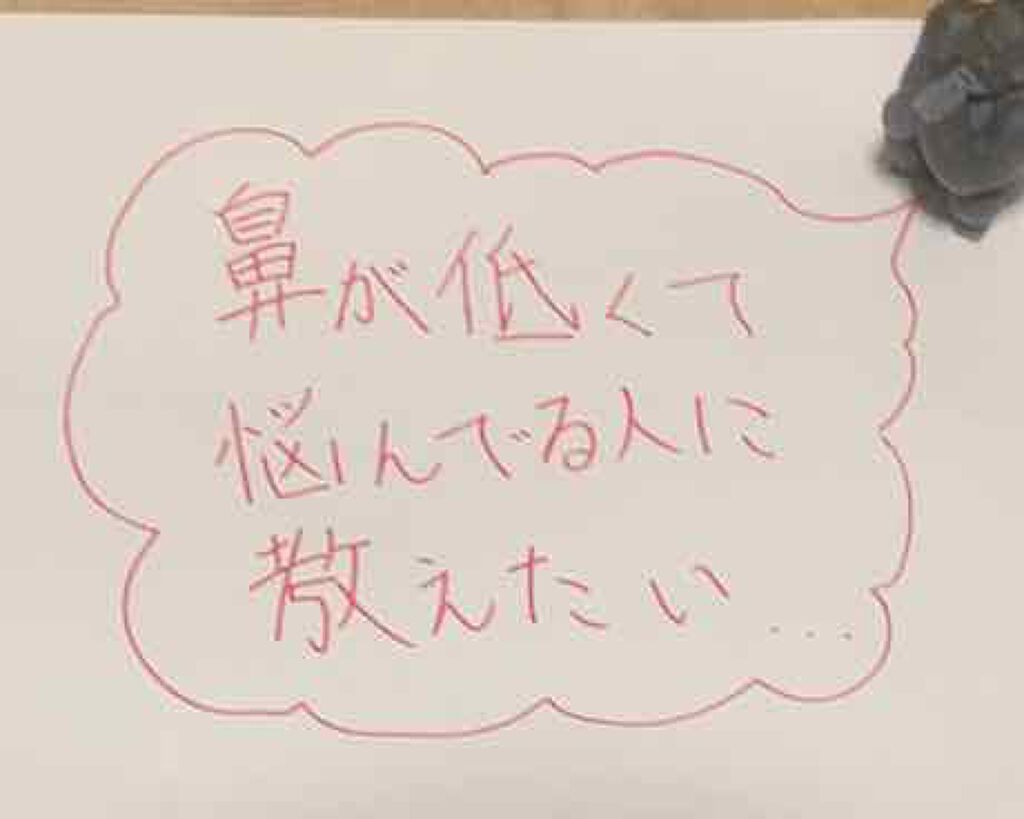 鼻が低くて
悩んでる人に
教えたい...